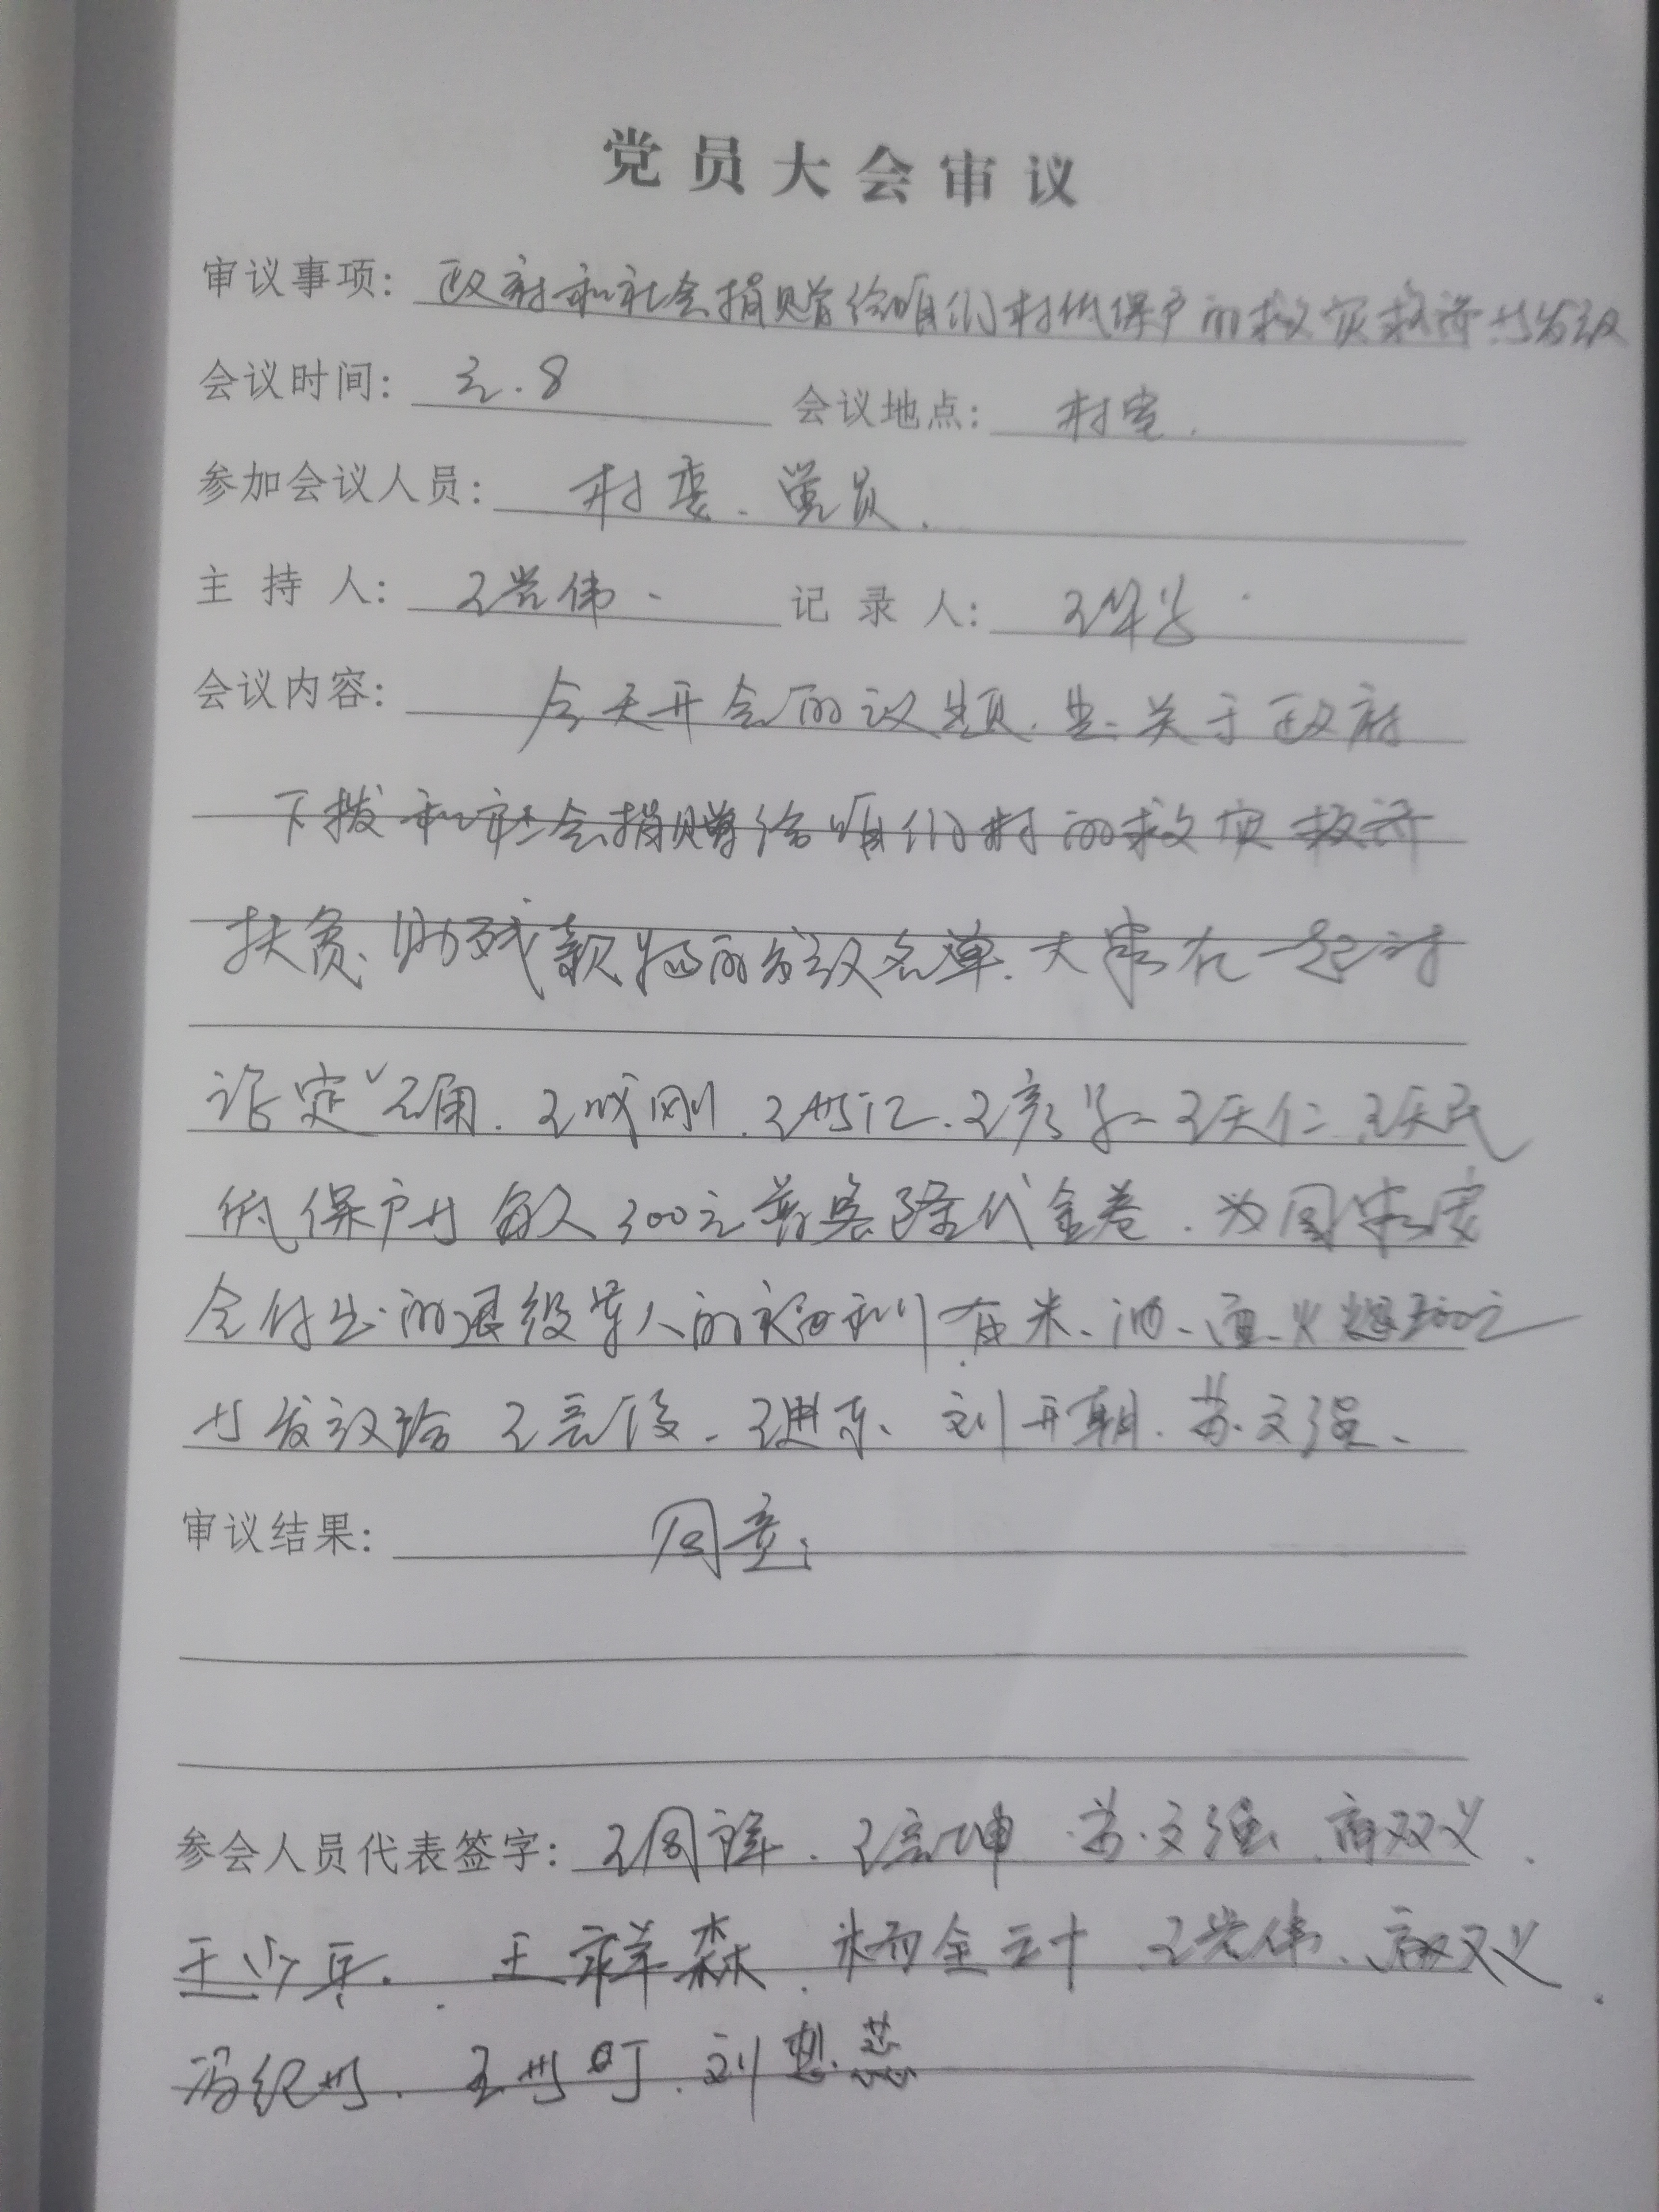 党员大会审议
审议事项: 政府和社会捐赠给咱们村低保户的救灾救济发放
会议时间: 元.8 会议地点: 村室.
参加会议人员: 村委、党员.
主持人: 王党伟 记录人: 王
会议内容: 今天开会的议题.是关于政府
下拨和社会捐赠给咱们村的救灾救济
扶贫、助残款物的发放名单.大家在一起讨
论定 王成刚.王世江.王彦.王天仁.王天民
低保户 每人300元普惠隆代金卷.为国家安
全付出的退役军人的福利有米、油、面、火
发放给 王彦俊、王进东、刘开朝.苏文强、
审议结果: 同意
参会人员代表签字: 王国祥.王彦坤 苏文强.商双义.
王少兵.王祥森.杨金云 王党伟、商双义.
冯纪世.王世町.刘想蕊